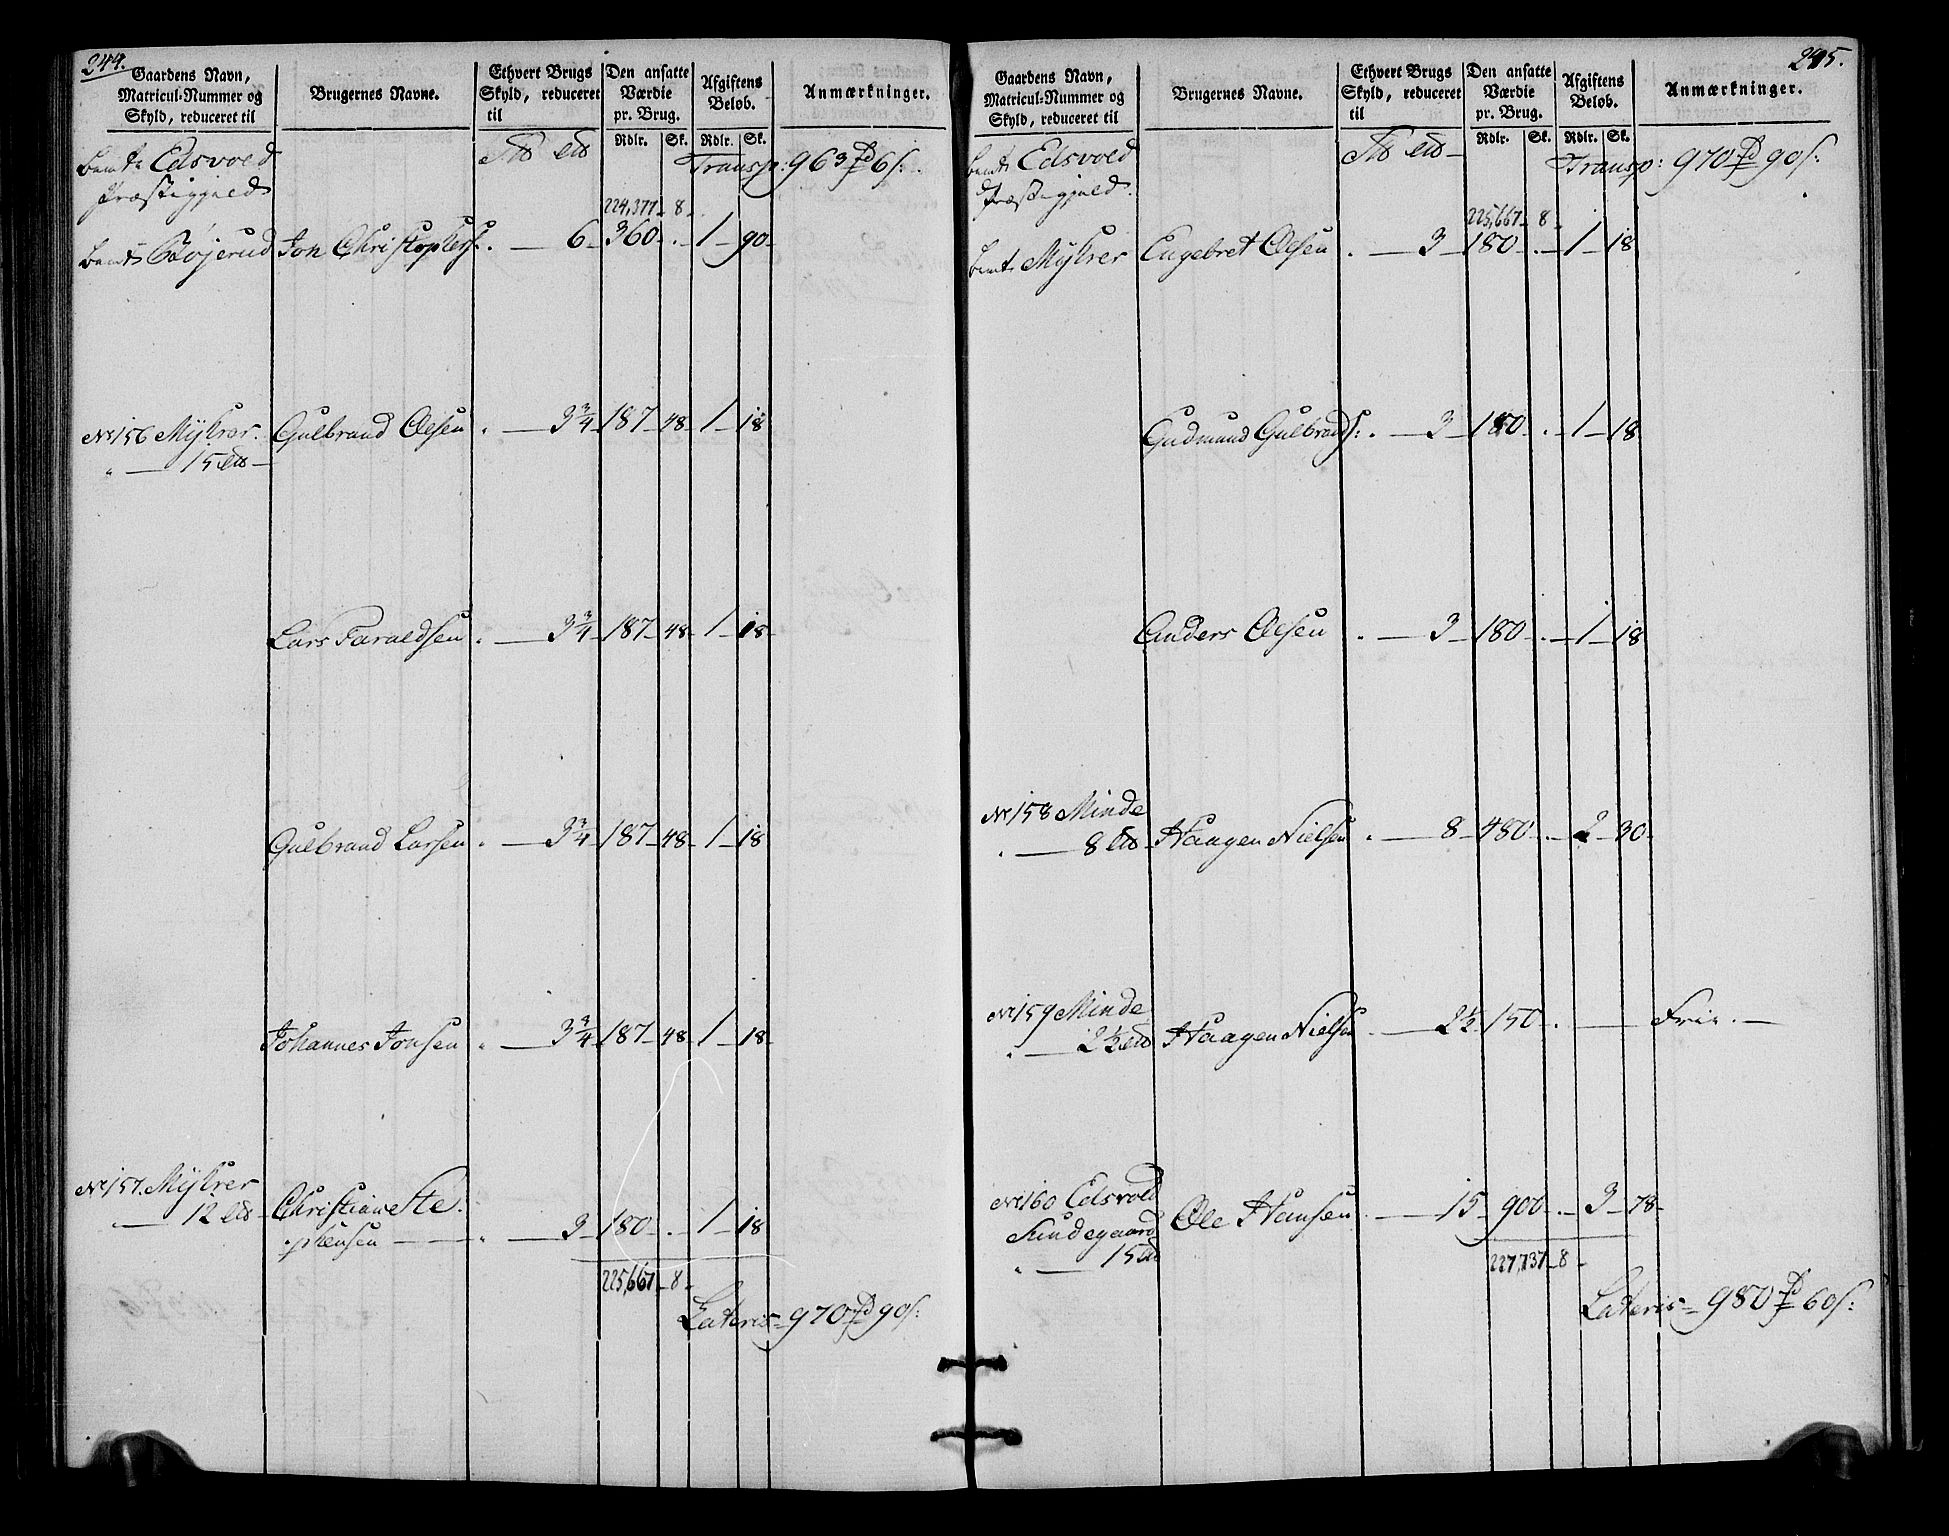 244.
Gaardens Navn, Matricul-Nummer og Skyld, reduceret til
Brugernes Navne.
Ethvert Brugs Skyld, reduceret til
Den ansatte Værdie pr. Brug.
Afgiftens Beløb.
Anmærkninger.
Rdlr. Sk. Rdlr. Sk.
Edsvold Transp: 963 6 s.
Præstegjeld
224,377 8
Bøjerud Jon Christophers. 6 360 . 1 90
No 156 Mÿhrer. Gulbrand Olsen . 3 3/4 187 48 1 18
" 15
Lars Faraldsen . 3 3/4 187 48 1 18
Gulbrand Larsen . 3 3/4 187 48 1 18
Johannes Jonsen . 3 3/4 187 48 1 18
No 157. Mÿhrer Christian Ste
12 phensen 3 180 . 1 18
225,667 8
Lateris 970 90 s:
245.
Gaardens Navn, Matricul-Nummer og Skyld, reduceret til
Brugernes Navne.
Ethvert Brugs Skyld, reduceret til
Den ansatte Værdie pr. Brug.
Afgiftens Beløb.
Anmærkninger.
Rdlr. Sk. Rdlr. Sk.
Edsvold Transp: 970 90 s:
Præstegjeld.
225,667 8
Mÿhrer Engebret Olsen . 3 180 . 1 18
Gudmund Gulbrands: . 3 180 . 1 18
Anders Olsen . 3 180 . 1 18
No 158 Minde
8 Haagen Nielsen . 8 480 . 2 30
No 159 Minde
2 1/2 Haagen Nielsen . 2 1/2 150 . Frie.
No 160 Edsvold Ole Hansen . 15 900 . 3 78
Sundegaard
" 15
227,737 8
Lateris 980 60 s: